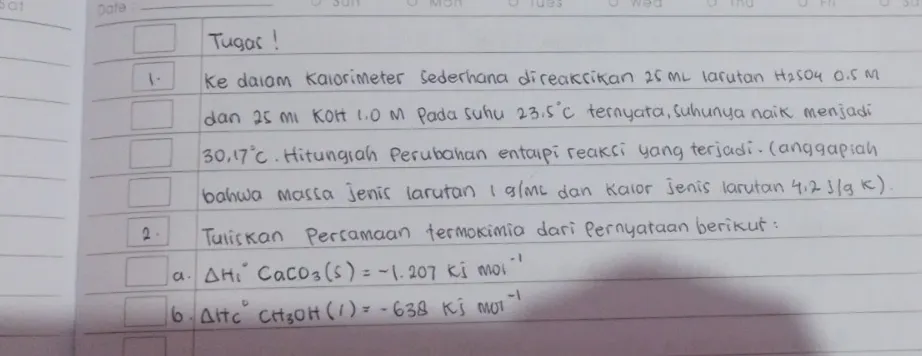 Date :
Sun Mon Tues Wed Thu Fri
Tugas !
1. Ke dalam kalorimeter sederhana direaksikan 25 mL larutan H2SO4 0.5 M
dan 25 ml KOH 1.0 M Pada suhu 23.5°C ternyata, suhunya naik menjadi
30,17°C. Hitunglah Perubahan entalpi reaksi yang terjadi. (anggaplah
bahwa massa jenis larutan 1 g/mL dan kalor jenis larutan 4,2 J/g K).
2. Tuliskan Persamaan termokimia dari Pernyataan berikut :
a. ΔHi° CaCO3(s) = -1.207 kj mol⁻¹
b. ΔHc° CH3OH (l) = -638 kj mol⁻¹